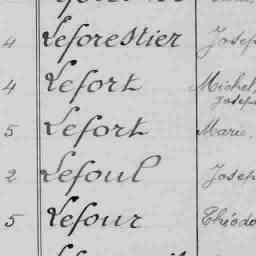 4 Leforestier Josep
4 Lefort Michel,
Josep
5 Lefort Marie.
2 Lefoul Josep
5 Lefour Théodo